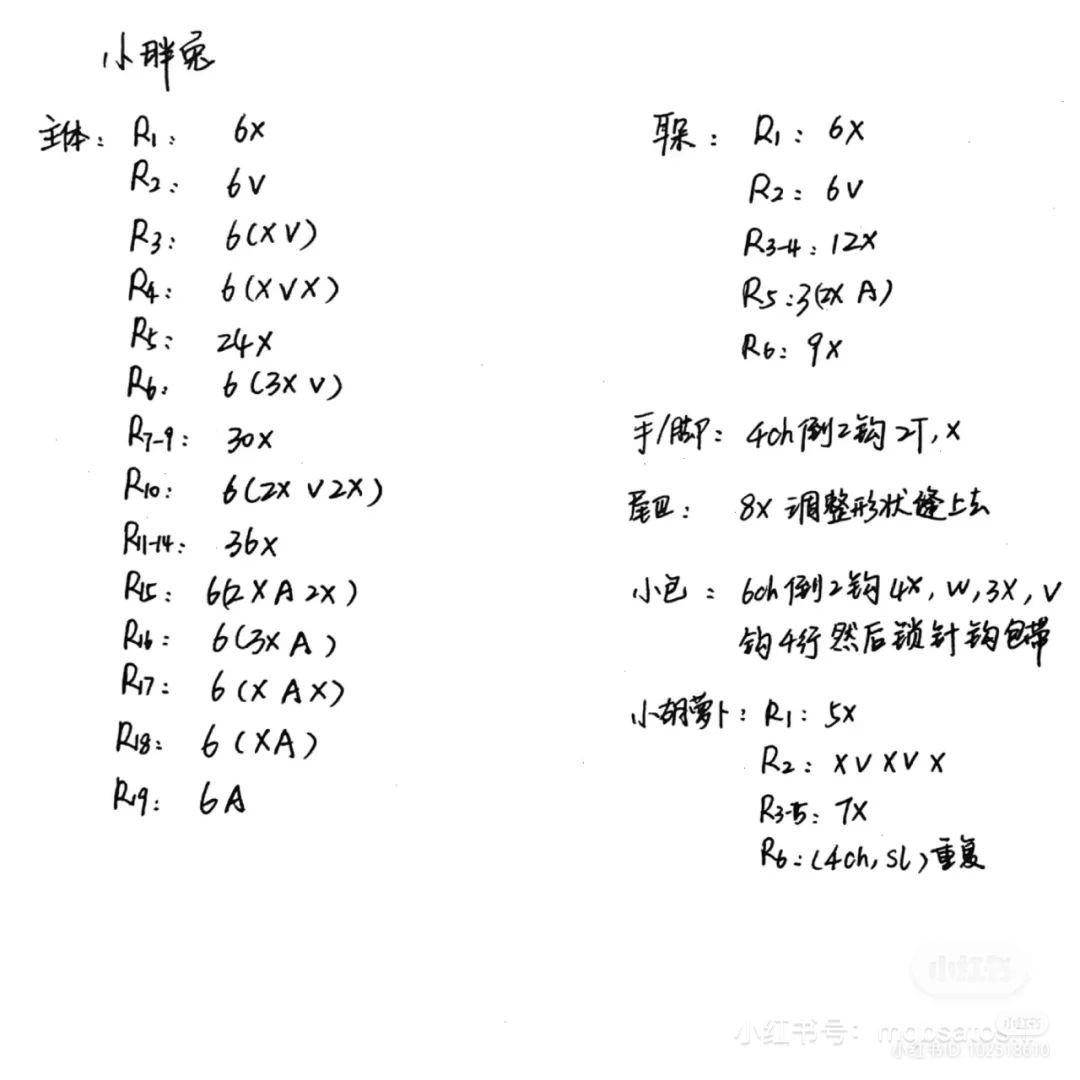 小胖兔
主体: R1: 6X
R2: 6V
R3: 6(XV)
R4: 6(XVX)
R5: 24X
R6: 6(3XV)
R7-9: 30X
R10: 6(2XV2X)
R11-14: 36X
R15: 6(2XA2X)
R16: 6(3XA)
R17: 6(XAX)
R18: 6(XA)
R19: 6A
耳朵: R1: 6X
R2: 6V
R3-4: 12X
R5: 3(2XA)
R6: 9X
手/脚: 4ch倒2钩2T,X
尾巴: 8X 调整形状缝上去
小包: 6ch倒2钩4X,W,3X,V
钩4行然后锁针钩包带
小胡萝卜: R1: 5X
R2: XVXVX
R3-5: 7X
R6: (4ch,SL)重复
小红书
小红书号:
小红书
小红书ID 102518610